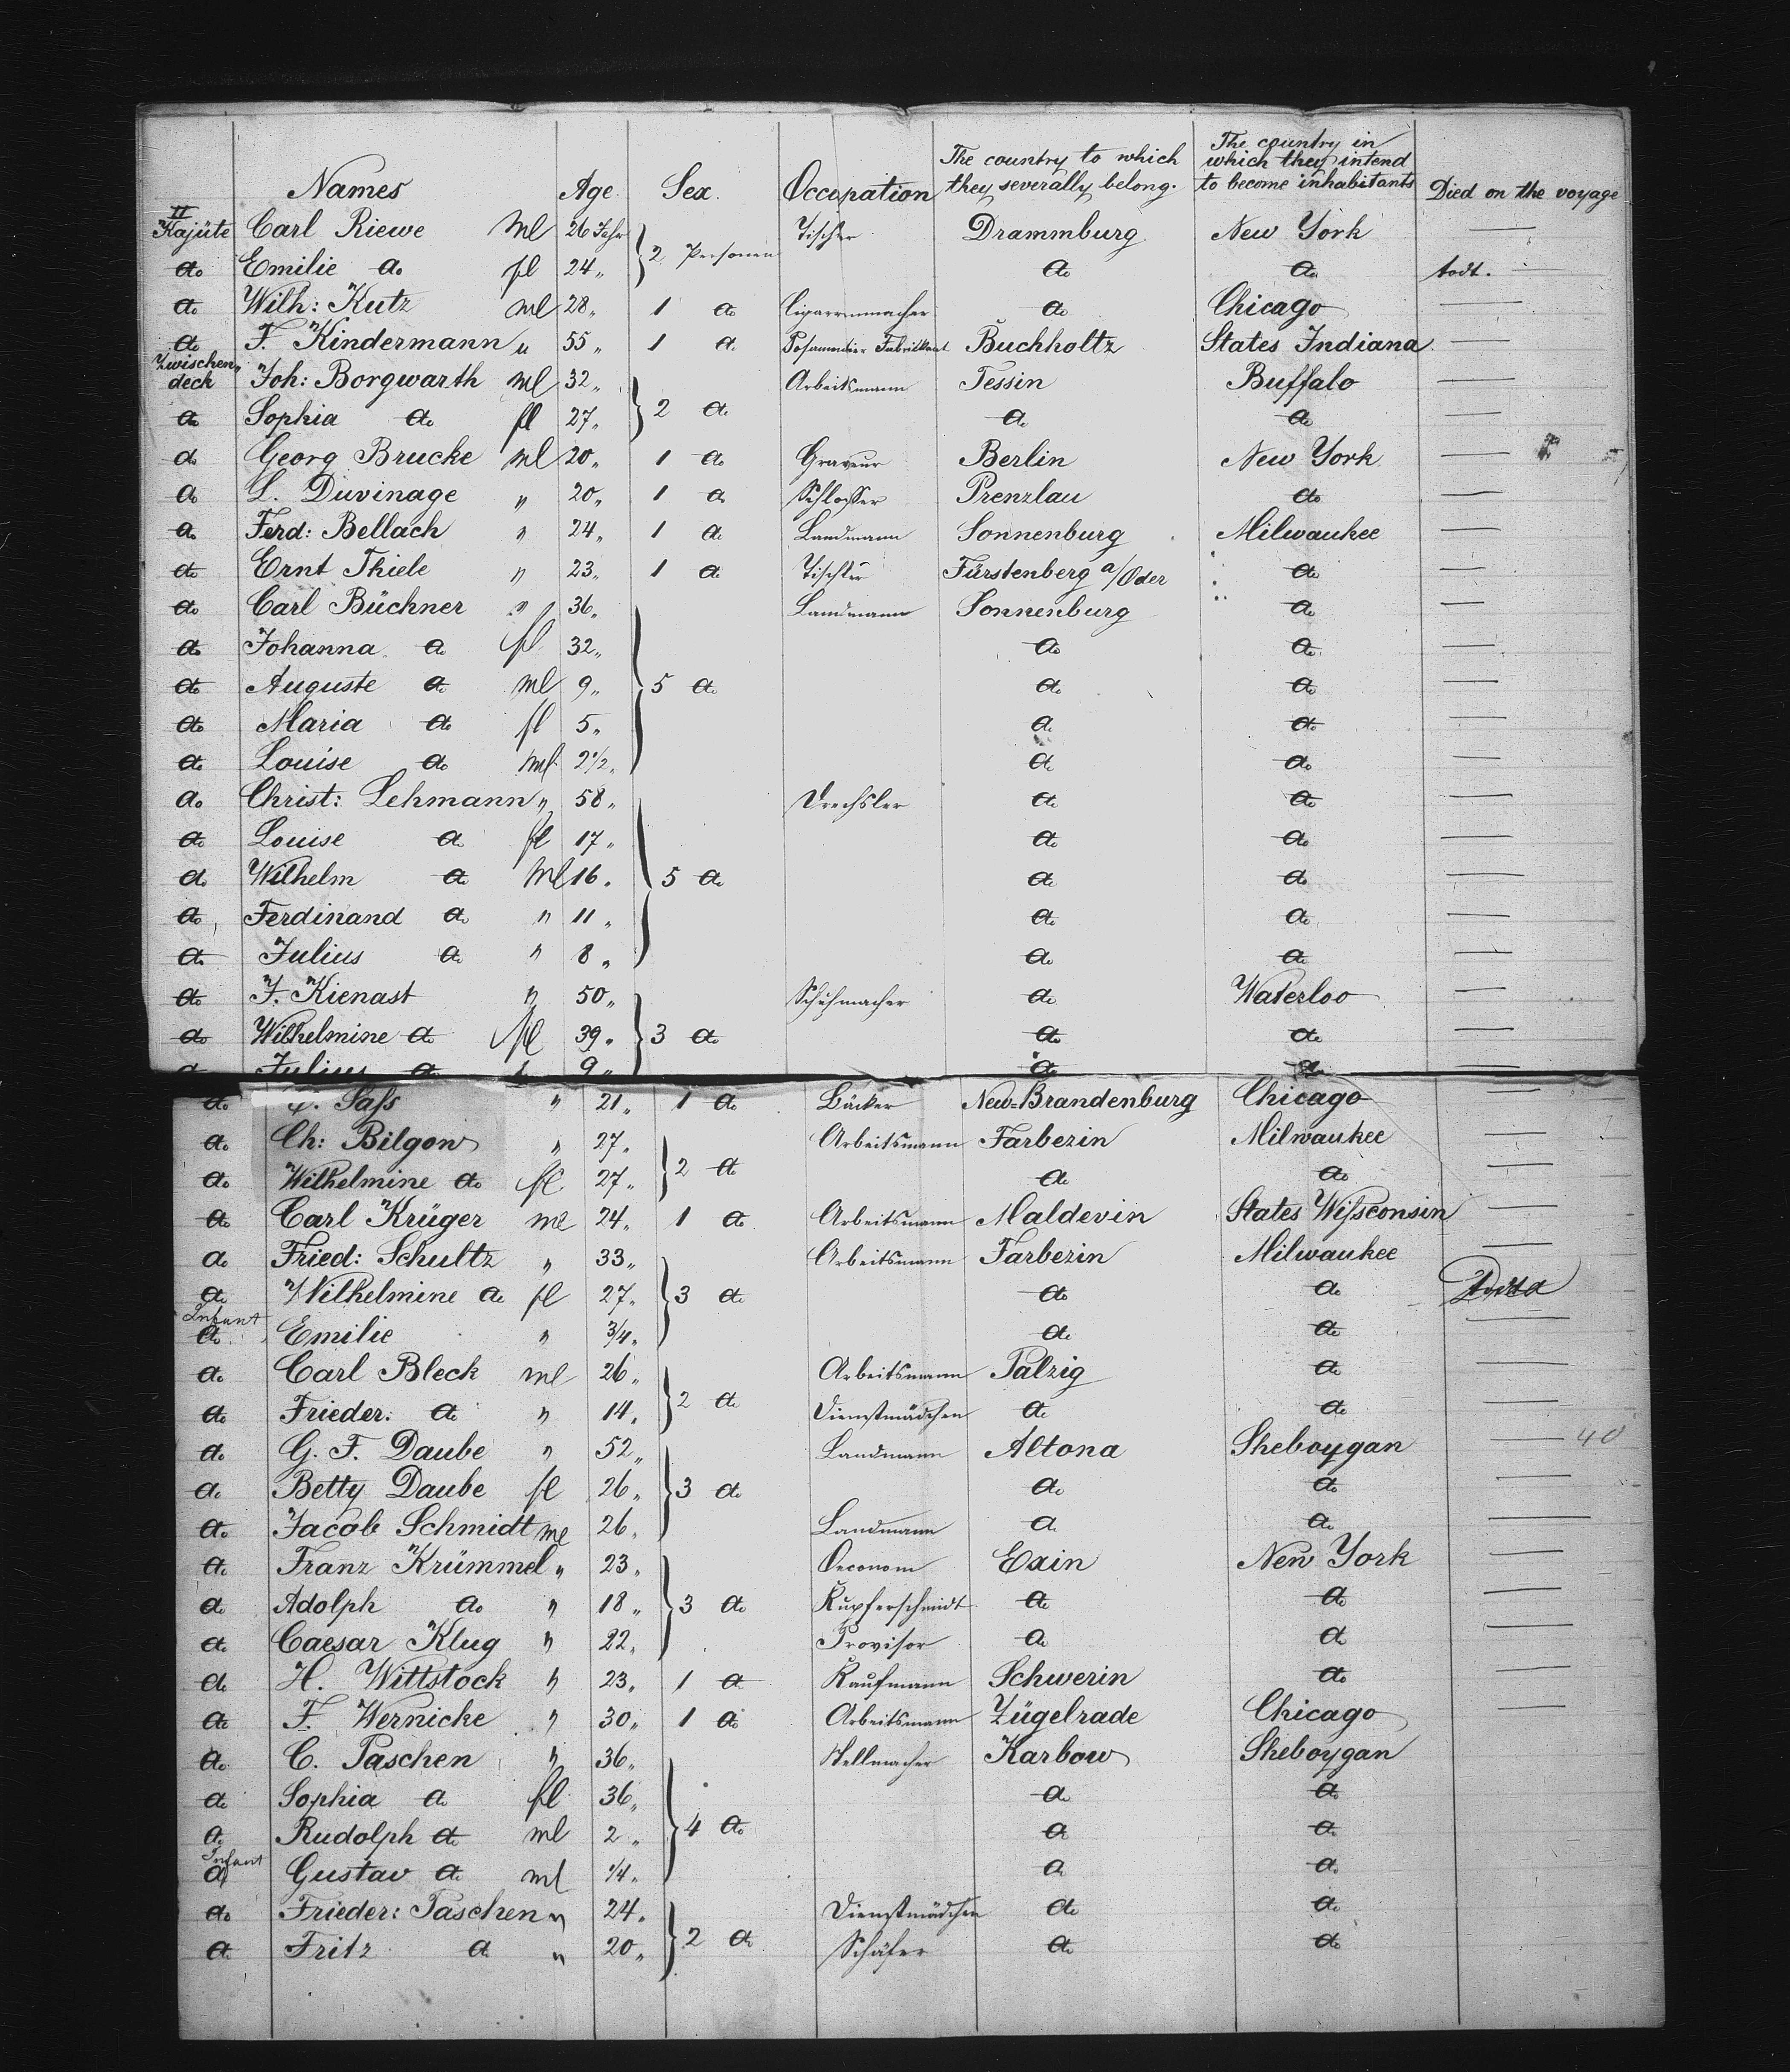 Names Age Sex. Occupation The country to which they severally belong. The country in which they intend to become inhabitants Died on the voyage
II Kajüte Carl Riewe ml 26 Jahr 2 Personen Tischler Drammburg New York —
do Emilie do fl 24 " do do todt. —
do Wilh: Kutz ml 28 " 1 do Cigarrenmacher do Chicago —
do F. Kindermann " 55 " 1 do Posamentier Fabrikant Buchholtz States Indiana —
Zwischendeck Joh: Borgwarth ml 32 " Arbeitsmann Tessin Buffalo —
do Sophia do fl 27 " 2 do do do —
do Georg Brucke ml 20 " 1 do Graveur Berlin New York —
do L. Duvinage " 20 " 1 do Schlosser Prenzlau do —
do Ferd: Bellach " 24 " 1 do Landmann Sonnenburg Milwaukee —
do Ernt Thiele " 23 " 1 do Tischler Fürstenberg a/Oder do —
do Carl Büchner " 36 " Landmann Sonnenburg do —
do Johanna do fl 32 " do do —
do Auguste do ml 9 " 5 do do do —
do Maria do fl 5 " do do —
do Louise do ml 2½ " do do —
do Christ: Lehmann " 58 " Drechsler do do —
do Louise do fl 17 " do do —
do Wilhelm do ml 16 " 5 do do do —
do Ferdinand do " 11 " do do —
do Julius do " 8 " do do —
do J. Kienast " 50 " Schuhmacher do Waterloo —
do Wilhelmine do fl 39 " 3 do do do —
do Julius do 9 " do do
do Sass " 21 " 1 do Bäcker New-Brandenburg Chicago —
do Ch: Bilgow " 27 " Arbeitsmann Farbezin Milwaukee —
do Wilhelmine do fl 27 " 2 do do do —
do Carl Krüger ml 24 " 1 do Arbeitsmann Maldevin States Wissconsin —
do Fried: Schultz " 33 " Arbeitsmann Farbezin Milwaukee —
do Wilhelmine do fl 27 " 3 do do do
Infant do Emilie " ¾ " do do —
do Carl Bleck ml 26 " Arbeitsmann Palzig do —
do Frieder: do " 14 " 2 do Dienstmädchen do do —
do G. F. Daube " 52 " Landmann Altona Sheboygan — 40
do Betty Daube fl 26 " 3 do do do —
do Jacob Schmidt ml 26 " Landmann do do —
do Franz Krümmel " 23 " Oeconom Exin New York —
do Adolph do " 18 " 3 do Kupferschmidt do do —
do Caesar Klug " 22 " Provisor do do —
do H. Wittstock " 23 " 1 do Kaufmann Schwerin do —
do F. Wernicke " 30 " 1 do Arbeitsmann Zügelrade Chicago —
do C. Paschen " 36 " Stellmacher Karbow Sheboygan
do Sophia do fl 36 " do do
do Rudolph do ml 2 " 4 do do do
Infant do Gustav do ml ¼ " do do
do Frieder: Paschen " 24 " Dienstmädchen do do
do Fritz do " 20 " 2 do Schäfer do do